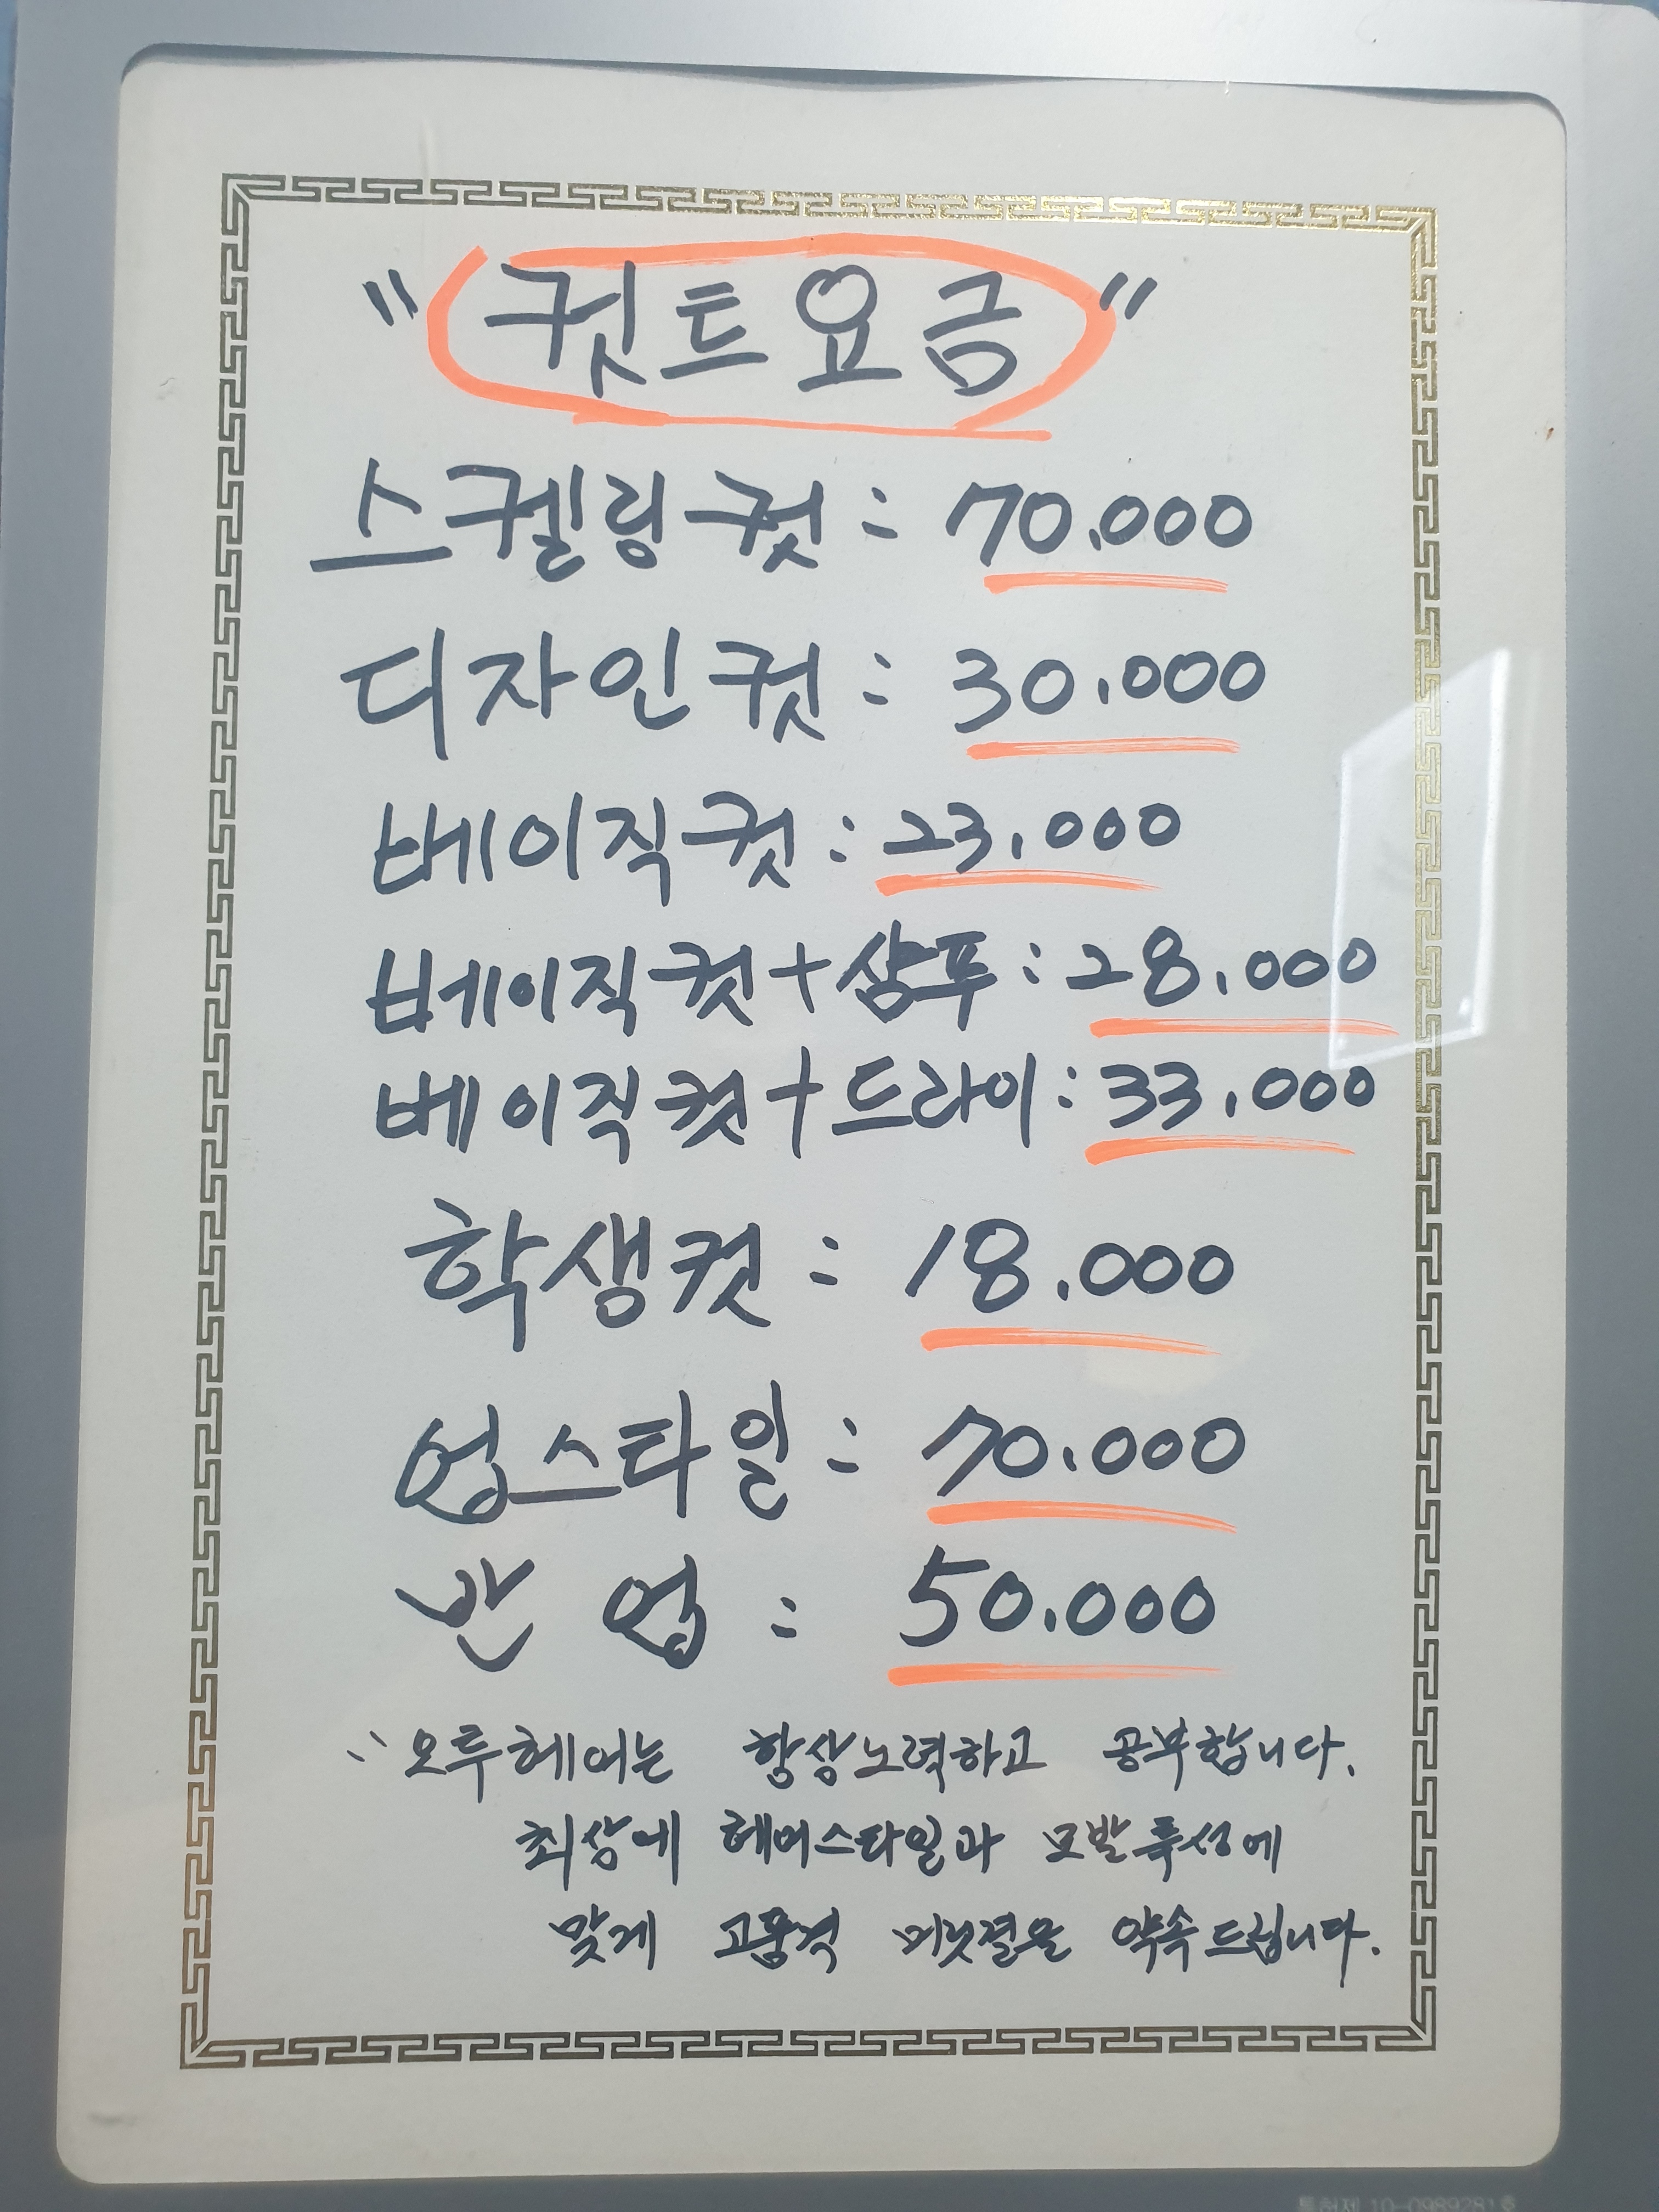 "컷트요금"
스퀠링컷 : 70.000
디자인컷 : 30.000
베이직컷 : 23.000
베이직컷+샴푸 : 28.000
베이직컷+드라이 : 33.000
학생컷 : 18.000
업스타일 : 70.000
반 업 : 50.000
"오투헤어는 항상노력하고 공부합니다.
최상에 헤어스타일과 모발특성에
맞게 고품격 머릿결을 약속드립니다.
특허제 10-0989281호